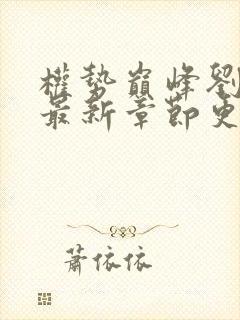 權勢巔峰劉
最新章節更
蕭依依